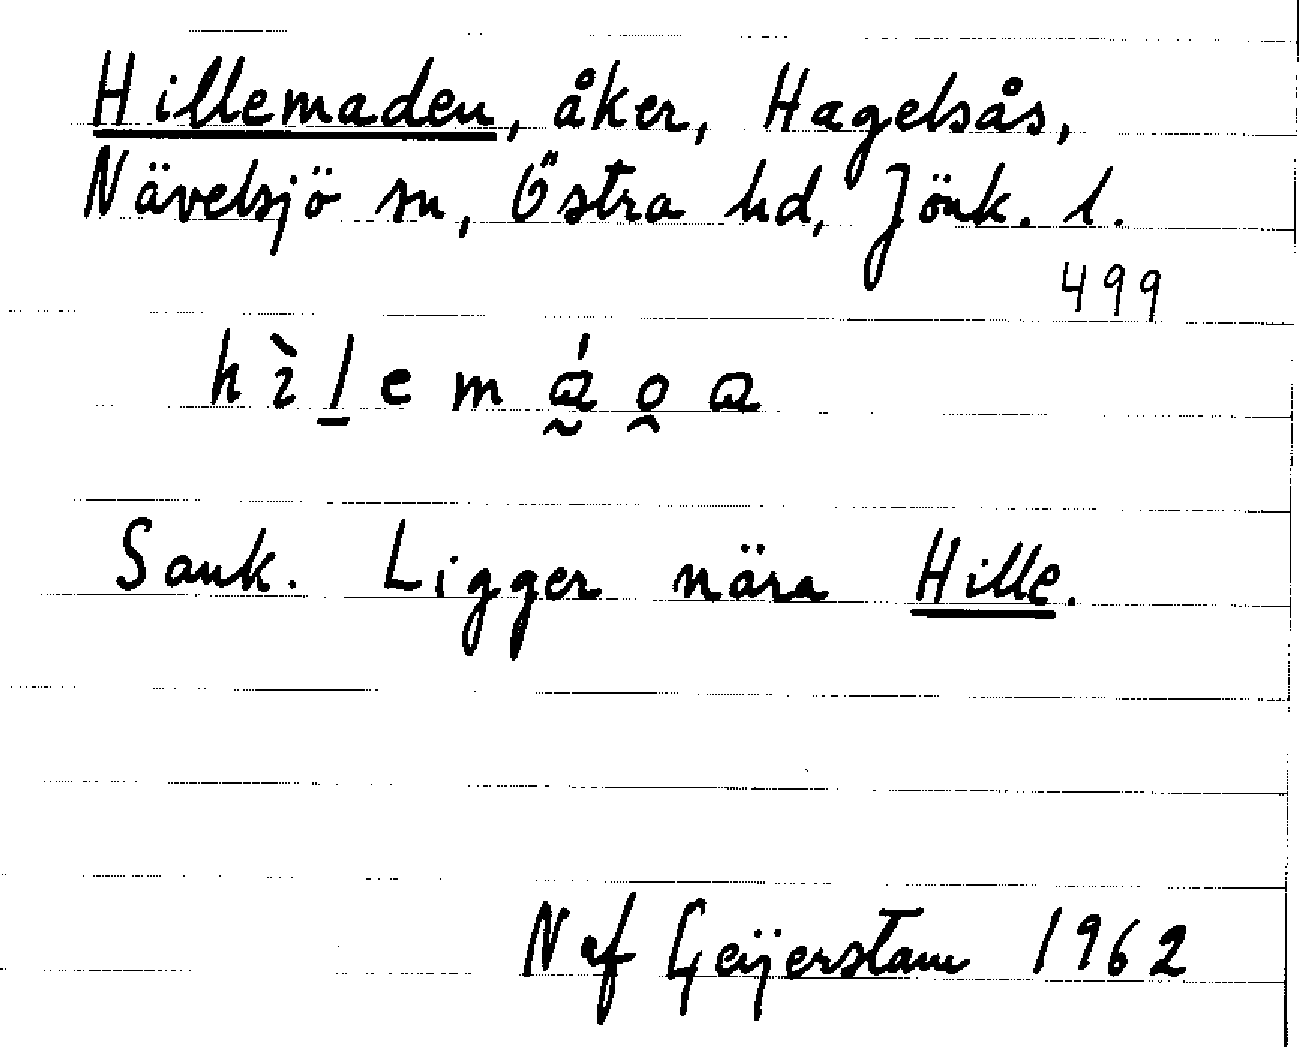 Hillemaden, åker, Hagelsås,
Nävelsjö sn, Östra hd, Jönk. l.
499
Sank. Ligger nära Hille.
N af Geijerstam 1962